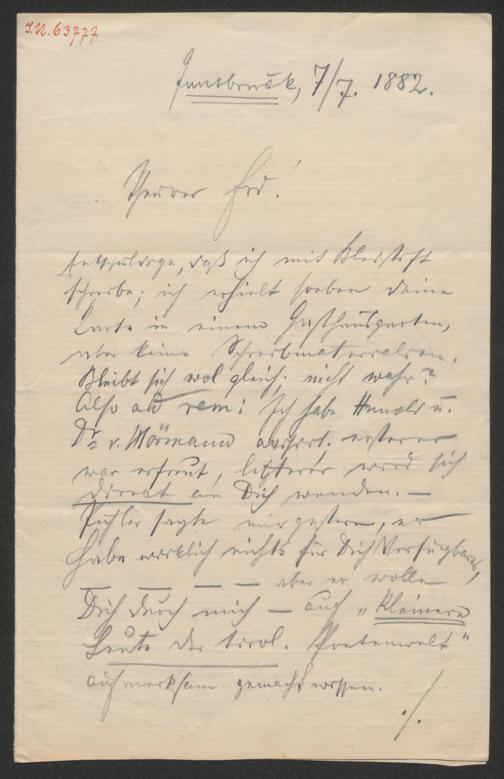 I.N. 63777
Innsbruck, 7/7. 1882.
Theurer Frd!
Entschuldige, daß ich mit Bleistift
schreibe; ich erhielt soeben deine
Karte in einem Gasthausgarten,
aber keine Schreibmaterialien.
Bleibt sich wol gleich; nicht wahr?
Also ad rem: Ich habe Hunold u.
Dr. v. Hörmann avisirt. ersterer
war erfreut, letzterer wird sich
direct an Dich wenden. –
Pichler sagte mir gestern, er
habe wirklich nichts für Dich Verfügbares,
– – – – aber er wolle
Dich durch mich – auf „kleinere
Leute der tirol. Poetenwelt"
aufmerksam gemacht wissen.
./.